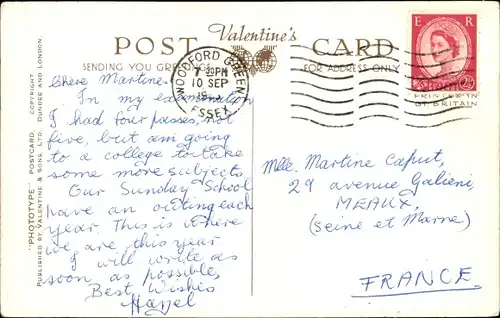 POST
Valentine's
CARD
SENDING YOU GREETINGS
FOR ADDRESS ONLY
E R
PRINTED IN
GT. BRITAIN
WOODFORD GREEN
PM
10 SEP
ESSEX
Chère Martine,
In my examination
I had four passes, not
five, but am going
to a college to take
some more subjects.
Our Sunday School
have an outing each
year. This is where
we are, this year
I will write as
soon as possible
Best Wishes
Hazel
Mlle. Martine Caput,
29 avenue Galieni,
MEAUX,
(Seine et Marne)
FRANCE.
"PHOTOTYPE" POSTCARD. COPYRIGHT
PUBLISHED BY VALENTINE & SONS LTD., DUNDEE AND LONDON.